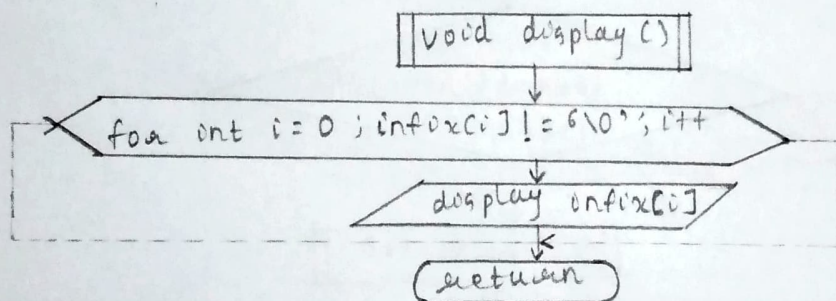 void display()
for int i = 0 ; infix[i] != '\0' ; i++
display infix[i]
return